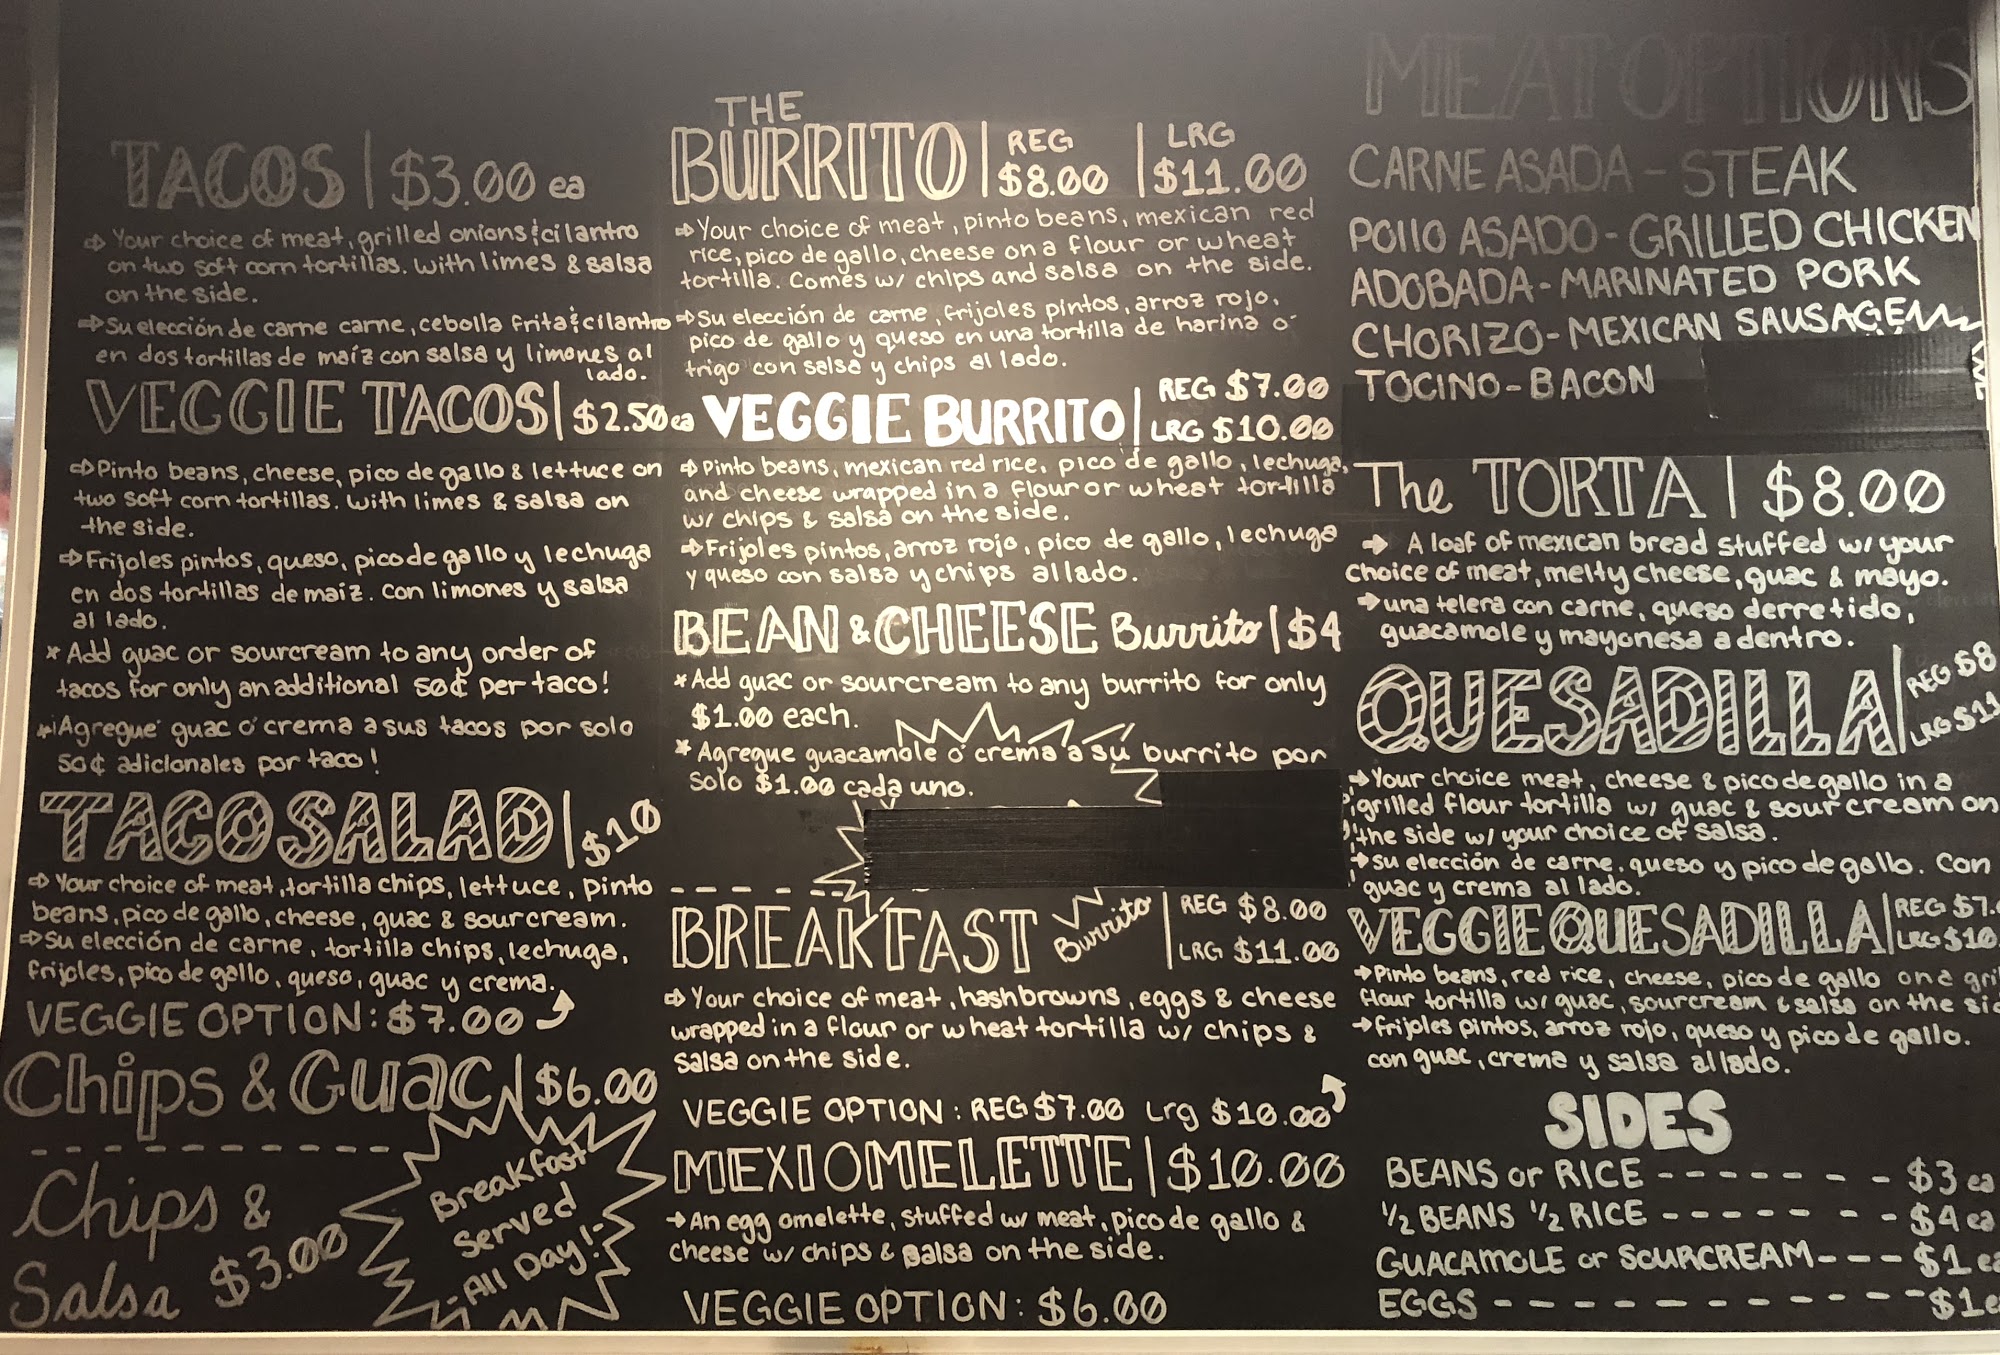 TACOS | $3.00 ea
⇨ Your choice of meat, grilled onions & cilantro
on two soft corn tortillas. with limes & salsa
on the side.
⇨ Su elección de carne carne, cebolla frita & cilantro
en dos tortillas de maíz con salsa y limones al
lado.
VEGGIE TACOS | $2.50 ea
⇨ Pinto beans, cheese, pico de gallo & lettuce on
two soft corn tortillas. with limes & salsa on
the side.
⇨ Frijoles pintos, queso, pico de gallo y lechuga
en dos tortillas de maíz. con limones y salsa
al lado.
* Add guac or sourcream to any order of
tacos for only an additional 50¢ per taco!
* ¡Agregue guac ó crema a sus tacos por solo
50¢ adicionales por taco!
TACO SALAD | $10
⇨ Your choice of meat, tortilla chips, lettuce, pinto
beans, pico de gallo, cheese, guac & sourcream.
⇨ Su elección de carne, tortilla chips, lechuga,
frijoles, pico de gallo, queso, guac y crema.
VEGGIE OPTION: $7.00
Chips & Guac | $6.00
Chips &
Salsa $3.00
Breakfast
Served
-All Day!-
THE
BURRITO | REG $8.00 | LRG $11.00
⇨ Your choice of meat, pinto beans, mexican red
rice, pico de gallo, cheese on a flour or wheat
tortilla. Comes w/ chips and salsa on the side.
⇨ Su elección de carne, frijoles pintos, arroz rojo,
pico de gallo y queso en una tortilla de harina ó
trigo con salsa y chips al lado.
VEGGIE BURRITO | REG $7.00
LRG $10.00
⇨ Pinto beans, mexican red rice, pico de gallo, lechuga,
and cheese wrapped in a flour or wheat tortilla
w/ chips & salsa on the side.
⇨ Frijoles pintos, arroz rojo, pico de gallo, lechuga
y queso con salsa y chips al lado.
BEAN & CHEESE Burrito | $4
* Add guac or sourcream to any burrito for only
$1.00 each.
* Agregue guacamole ó crema a su burrito por
solo $1.00 cada uno.
BREAKFAST Burrito | REG $8.00
LRG $11.00
⇨ Your choice of meat, hashbrowns, eggs & cheese
wrapped in a flour or wheat tortilla w/ chips &
salsa on the side.
VEGGIE OPTION: REG $7.00 Lrg $10.00
MEXIOMELETTE | $10.00
→ An egg omelette, stuffed w/ meat, pico de gallo &
cheese w/ chips & salsa on the side.
VEGGIE OPTION: $6.00
MEAT OPTIONS
CARNE ASADA - STEAK
POllO ASADO - GRILLED CHICKEN
ADOBADA - MARINATED PORK
CHORIZO - MEXICAN SAUSAGE
TOCINO - BACON
The TORTA | $8.00
→ A loaf of mexican bread stuffed w/ your
choice of meat, melty cheese, guac & mayo.
→ una telera con carne, queso derretido,
guacamole y mayonesa adentro.
QUESADILLA | REG $8
LRG $11
→ Your choice meat, cheese & pico de gallo in a
grilled flour tortilla w/ guac & sour cream on
the side w/ your choice of salsa.
→ Su elección de carne, queso y pico de gallo. Con
guac y crema al lado.
VEGGIE QUESADILLA | REG $7.
LRG $10.
→ Pinto beans, red rice, cheese, pico de gallo on a gri
flour tortilla w/ guac, sourcream & salsa on the sid
→ frijoles pintos, arroz rojo, queso y pico de gallo.
con guac, crema y salsa al lado.
SIDES
BEANS or RICE - - - - - - - - $3 ea
1/2 BEANS 1/2 RICE - - - - - - - - $4 ea
GUACAMOLE or SOURCREAM - - - $1 ea
EGGS - - - - - - - - - - - - - $1 e